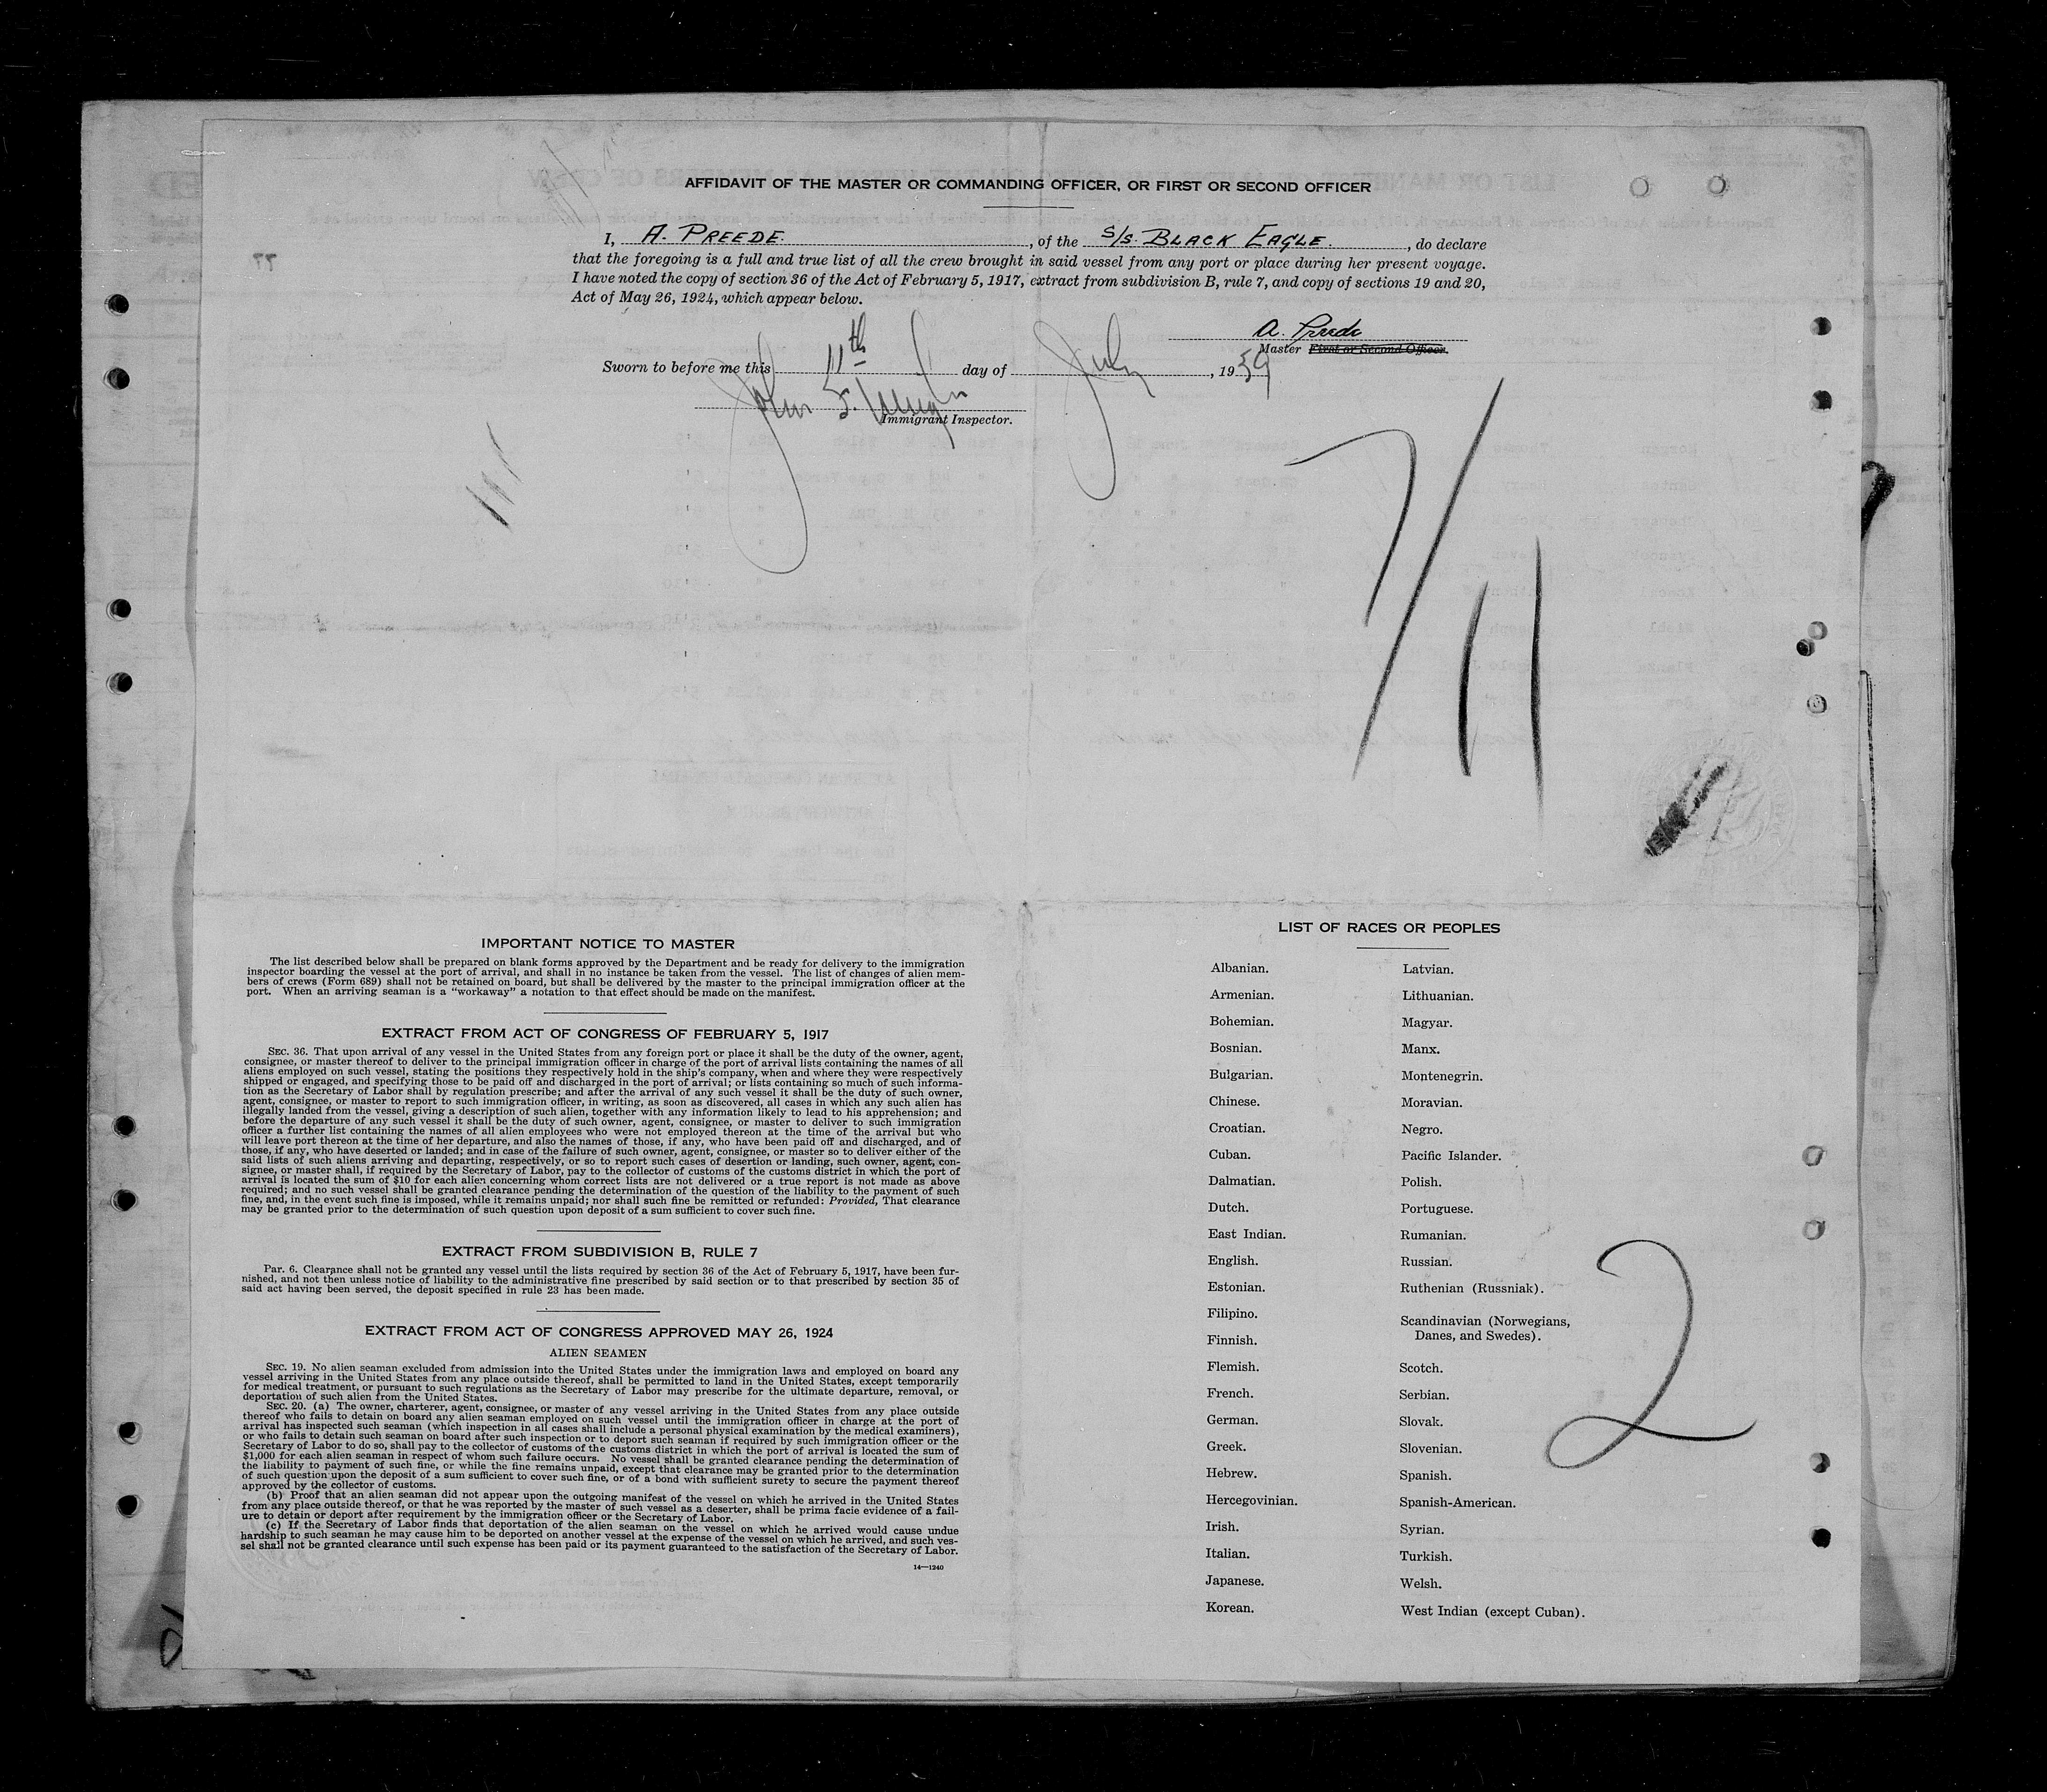 AFFIDAVIT OF THE MASTER OR COMMANDING OFFICER, OR FIRST OR SECOND OFFICER
I, A. PREEDE. , of the S/S. BLACK EAGLE. , do declare
that the foregoing is a full and true list of all the crew brought in said vessel from any port or place during her present voyage.
I have noted the copy of section 36 of the Act of February 5, 1917, extract from subdivision B, rule 7, and copy of sections 19 and 20,
Act of May 26, 1924, which appear below.
A. Preede
Master First or Second Officer.
Sworn to before me this 11th day of July , 1939
John F.
Immigrant Inspector.
7/11
IMPORTANT NOTICE TO MASTER
The list described below shall be prepared on blank forms approved by the Department and be ready for delivery to the immigration
inspector boarding the vessel at the port of arrival, and shall in no instance be taken from the vessel. The list of changes of alien mem-
bers of crews (Form 689) shall not be retained on board, but shall be delivered by the master to the principal immigration officer at the
port. When an arriving seaman is a "workaway" a notation to that effect should be made on the manifest.
EXTRACT FROM ACT OF CONGRESS OF FEBRUARY 5, 1917
SEC. 36. That upon arrival of any vessel in the United States from any foreign port or place it shall be the duty of the owner, agent,
consignee, or master thereof to deliver to the principal immigration officer in charge of the port of arrival lists containing the names of all
aliens employed on such vessel, stating the positions they respectively hold in the ship's company, when and where they were respectively
shipped or engaged, and specifying those to be paid off and discharged in the port of arrival; or lists containing so much of such informa-
tion as the Secretary of Labor shall by regulation prescribe; and after the arrival of any such vessel it shall be the duty of such owner,
agent, consignee, or master to report to such immigration officer, in writing, as soon as discovered, all cases in which any such alien has
illegally landed from the vessel, giving a description of such alien, together with any information likely to lead to his apprehension; and
before the departure of any such vessel it shall be the duty of such owner, agent, consignee, or master to deliver to such immigration
officer a further list containing the names of all alien employees who were not employed thereon at the time of the arrival but who
will leave port thereon at the time of her departure, and also the names of those, if any, who have been paid off and discharged, and of
those, if any, who have deserted or landed; and in case of the failure of such owner, agent, consignee, or master so to deliver either of the
said lists of such aliens arriving and departing, respectively, or so to report such cases of desertion or landing, such owner, agent, con-
signee, or master shall, if required by the Secretary of Labor, pay to the collector of customs of the customs district in which the port of
arrival is located the sum of $10 for each alien concerning whom correct lists are not delivered or a true report is not made as above
required; and no such vessel shall be granted clearance pending the determination of the question of the liability to the payment of such
fine, and, in the event such fine is imposed, while it remains unpaid; nor shall such fine be remitted or refunded: Provided, That clearance
may be granted prior to the determination of such question upon deposit of a sum sufficient to cover such fine.
EXTRACT FROM SUBDIVISION B, RULE 7
Par. 6. Clearance shall not be granted any vessel until the lists required by section 36 of the Act of February 5, 1917, have been fur-
nished, and not then unless notice of liability to the administrative fine prescribed by said section or to that prescribed by section 35 of
said act having been served, the deposit specified in rule 23 has been made.
EXTRACT FROM ACT OF CONGRESS APPROVED MAY 26, 1924
ALIEN SEAMEN
SEC. 19. No alien seaman excluded from admission into the United States under the immigration laws and employed on board any
vessel arriving in the United States from any place outside thereof, shall be permitted to land in the United States, except temporarily
for medical treatment, or pursuant to such regulations as the Secretary of Labor may prescribe for the ultimate departure, removal, or
deportation of such alien from the United States.
SEC. 20. (a) The owner, charterer, agent, consignee, or master of any vessel arriving in the United States from any place outside
thereof who fails to detain on board any alien seaman employed on such vessel until the immigration officer in charge at the port of
arrival has inspected such seaman (which inspection in all cases shall include a personal physical examination by the medical examiners),
or who fails to detain such seaman on board after such inspection or to deport such seaman if required by such immigration officer or the
Secretary of Labor to do so, shall pay to the collector of customs of the customs district in which the port of arrival is located the sum of
$1,000 for each alien seaman in respect of whom such failure occurs. No vessel shall be granted clearance pending the determination of
the liability to payment of such fine, or while the fine remains unpaid, except that clearance may be granted prior to the determination
of such question upon the deposit of a sum sufficient to cover such fine, or of a bond with sufficient surety to secure the payment thereof
approved by the collector of customs.
(b) Proof that an alien seaman did not appear upon the outgoing manifest of the vessel on which he arrived in the United States
from any place outside thereof, or that he was reported by the master of such vessel as a deserter, shall be prima facie evidence of a fail-
ure to detain or deport after requirement by the immigration officer or the Secretary of Labor.
(c) If the Secretary of Labor finds that deportation of the alien seaman on the vessel on which he arrived would cause undue
hardship to such seaman he may cause him to be deported on another vessel at the expense of the vessel on which he arrived, and such ves-
sel shall not be granted clearance until such expense has been paid or its payment guaranteed to the satisfaction of the Secretary of Labor.
14—1240
LIST OF RACES OR PEOPLES
Albanian.
Armenian.
Bohemian.
Bosnian.
Bulgarian.
Chinese.
Croatian.
Cuban.
Dalmatian.
Dutch.
East Indian.
English.
Estonian.
Filipino.
Finnish.
Flemish.
French.
German.
Greek.
Hebrew.
Hercegovinian.
Irish.
Italian.
Japanese.
Korean.
Latvian.
Lithuanian.
Magyar.
Manx.
Montenegrin.
Moravian.
Negro.
Pacific Islander.
Polish.
Portuguese.
Rumanian.
Russian.
Ruthenian (Russniak).
Scandinavian (Norwegians,
Danes, and Swedes).
Scotch.
Serbian.
Slovak.
Slovenian.
Spanish.
Spanish-American.
Syrian.
Turkish.
Welsh.
West Indian (except Cuban).
2